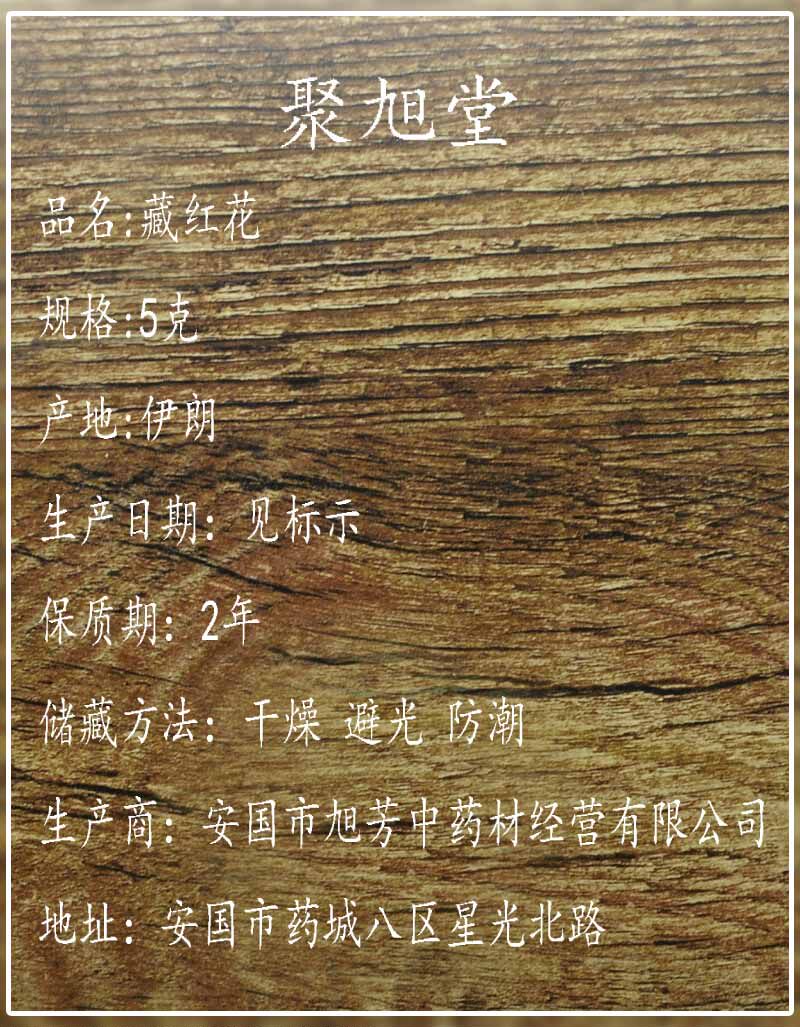 聚旭堂
品名:藏红花
规格:5克
产地:伊朗
生产日期：见标示
保质期：2年
储藏方法：干燥 避光 防潮
生产商：安国市旭芳中药材经营有限公司
地址：安国市药城八区星光北路